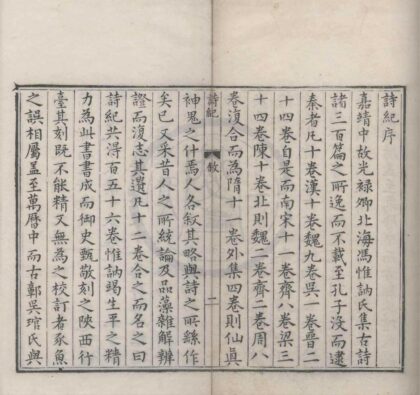 詩紀序
嘉靖中故光祿卿北海馮惟訥氏集古詩
諸三百篇之所逸而不載至孔子沒而逮
秦者凡十卷漢十卷魏九卷吳一卷晉二
十四卷自是而南宋十一卷齊八卷梁三
十四卷陳十卷北則魏二卷齊二卷周八
卷復合而為隋十一卷外集四卷則仙眞
詩紀
敘
一
神鬼之什焉人各叙其略與詩之所繇作
矣已又采昔人之所統論及品藻雜解辨
證而復志其遺凡十二卷合之而名之曰
詩紀共得百五十六卷惟訥竭生平之精
力為此書書成而御史甄敬刻之陝西行
臺其刻既不能精又無為之校訂者豕魚
之誤相屬盖至萬曆中而古鄣吳琯氏與